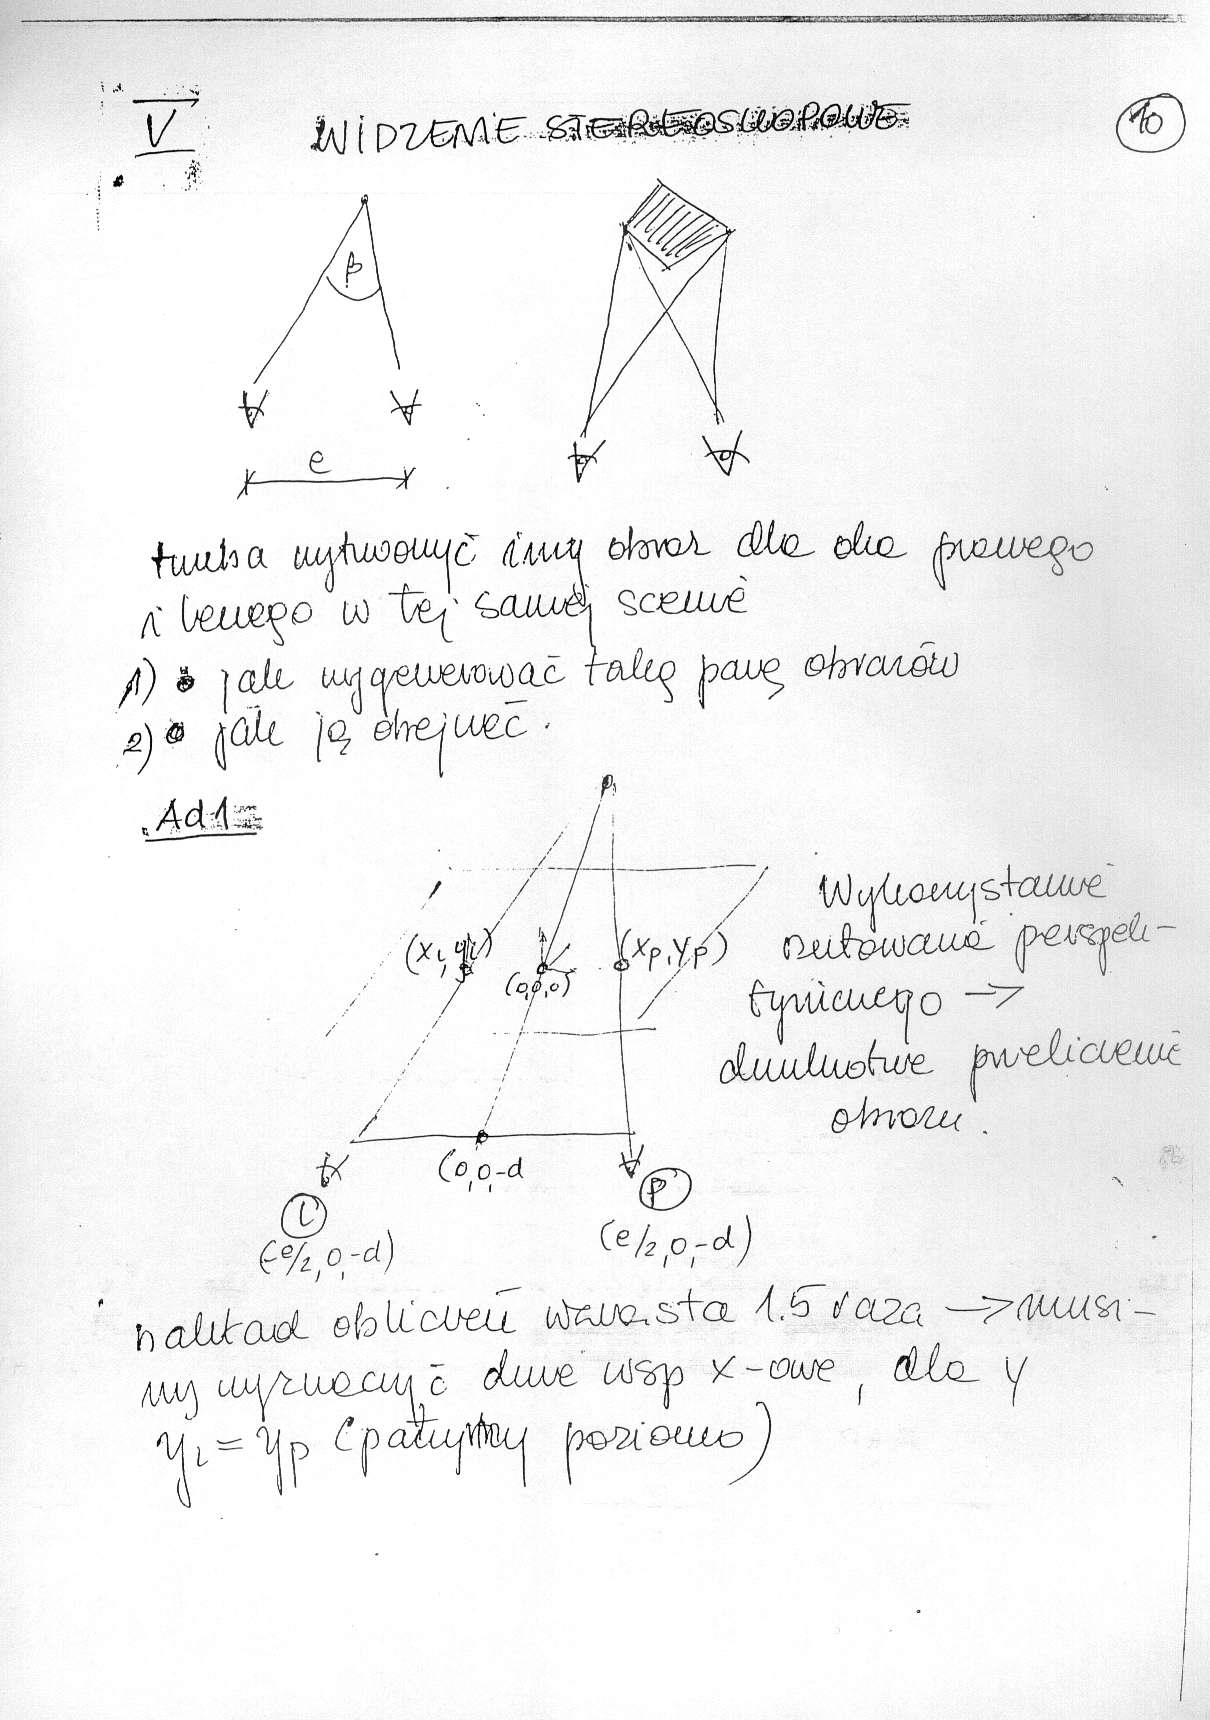 V
WIDZENIE STEREOSKOPOWE
10
β
e
trzeba wytworzyć inny obraz dla oka prawego
i lewego w tej samej scenie
1) jak wygenerować taką parę obrazów
2) jak ją obejrzeć.
Ad 1
(xL, yL)
(0,0,0)
(xp, yp)
Wykorzystanie
rzutowania perspek-
tywicznego →
dwukrotne przeliczenie
obrazu.
(0,0,-d
L
(-e/2,0,-d)
P
(e/2,0,-d)
nakład obliczeń wzrasta 1.5 raza → musi-
my wyznaczyć dwie wsp x-owe, dla y
yL = yp (patrzymy poziomo)